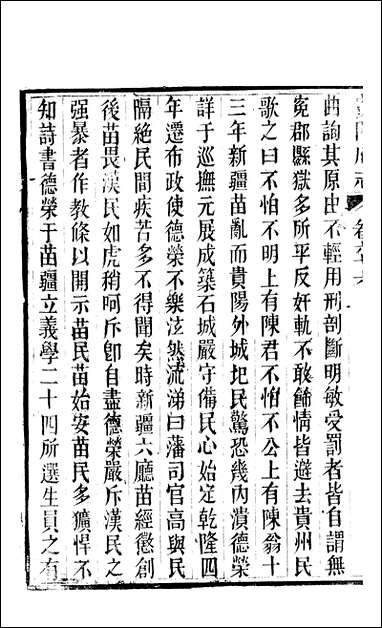 曲詢其原由不輕用刑剖斷明敏受罰者皆自謂無
寃郡縣獄多所平反奸軌不敢飾情皆遊去貴州民
歌之曰不怕不明上有陳君不怕不公上有陳翁十
三年新疆苗亂而貴陽外城圮民驚恐幾內潰德榮
詳于巡撫元展成築石城嚴守備民心始定乾隆四
年遷布政使德榮不樂泫然流涕曰藩司官高與民
隔絕民間疾苦多不得聞矣時新疆六廳苗經懲創
後苗畏漢民如虎稍呵斥卽自盡德榮嚴斥漢民之
强暴者作教條以開示苗民苗始安苗民多獷悍不
知詩書德榮于苗疆立義學二十四所選生員之有